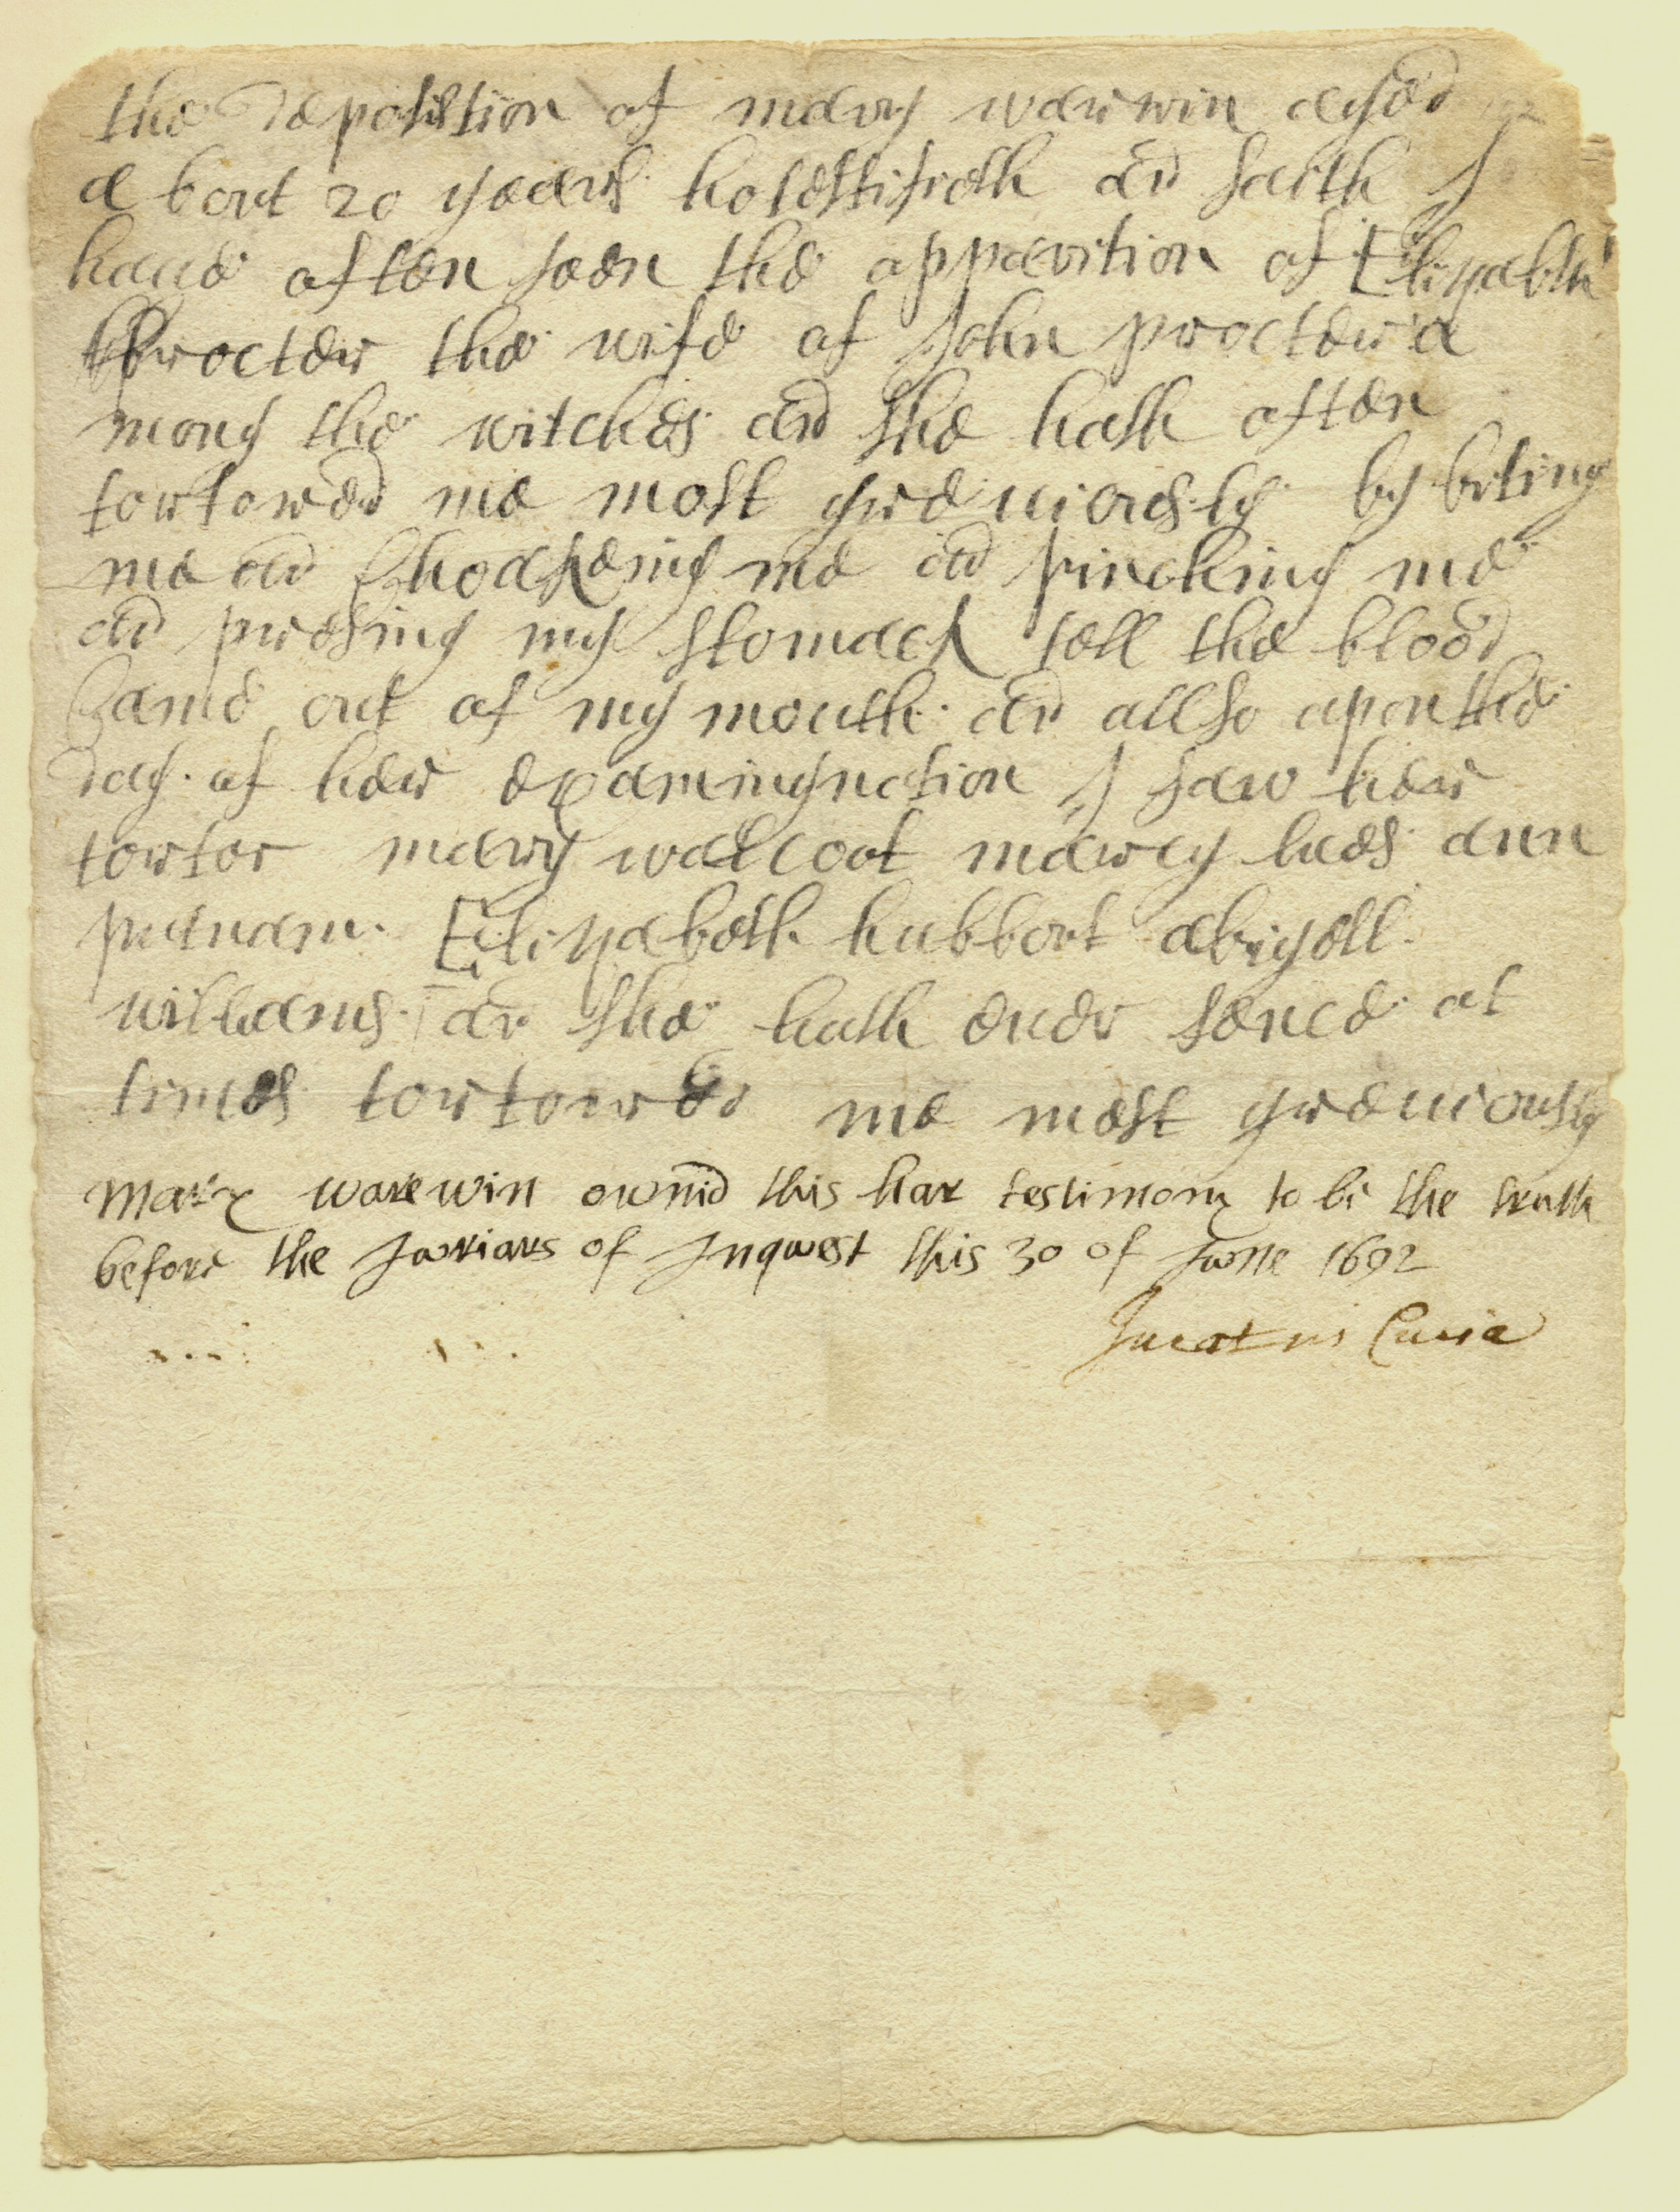 the deposistion of mary warrin aged
a bout 20 years ho testifieth and saith I
haue often seen the apparition of Elizabth
procter the wife of John procter a
mong the witches and she hath often
tortored me most greuiously by biting
me and Choakeing me and pinching me
and presing my stomack tell the blood
came out of my mouth and allso upon the
day of her examingnation I saw her
tortor mary walcoot marcy lues ann
putnam Elizabeth hubbort abigell
williams and she hath euer sence at
times tortored me most greuiously
Mary warewin ownid this har testimony to be the truth
before the Juriars of Inquest this 30 of June 1692
Jurat in Curia